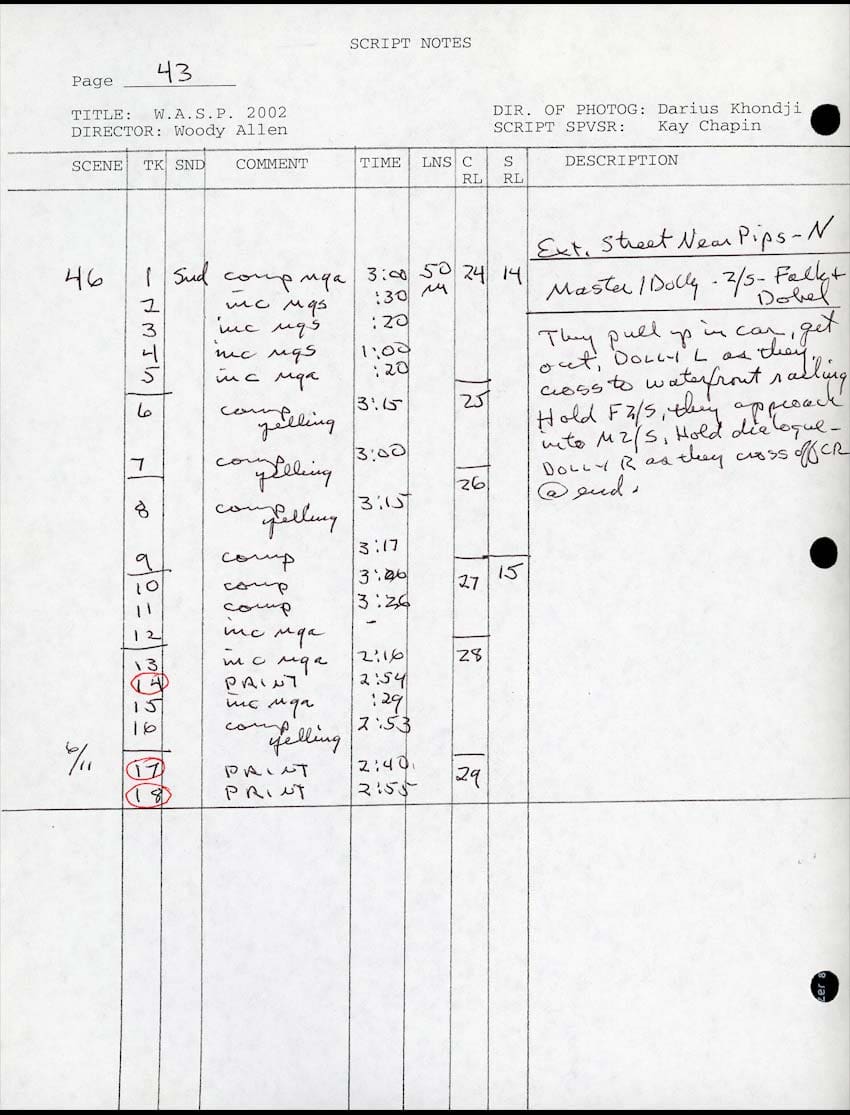 SCRIPT NOTES
Page 43
TITLE: W.A.S.P. 2002
DIR. OF PHOTOG: Darius Khondji
DIRECTOR: Woody Allen
SCRIPT SPVSR: Kay Chapin
SCENE TK SND COMMENT TIME LNS C RL S RL DESCRIPTION
Ext. Street Near Pips - N
46 1 Snd comp nga 3:00 50 24 14
Master / Dolly - 2/S - Falk + Dobel
2 inc ngs :30
3 inc ngs :20
4 inc ngs 1:00
5 inc nga :20
They pull up in car, get
out, DOLLY L as they
cross to waterfront railing
Hold F 2/S, they approach
into M2/S, Hold dialogue -
DOLLY R as they cross off CR
@ end.
6 comp yelling 3:15 25
7 comp yelling 3:00
8 comp yelling 3:15 26
9 comp 3:17
10 comp 27 15
11 comp 3:26
12 inc nga -
13 inc nga 2:16 28
14 PRINT 2:54
15 inc nga :29
16 comp yelling 2:53
6/11
17 PRINT 2:40 29
18 PRINT 2:55